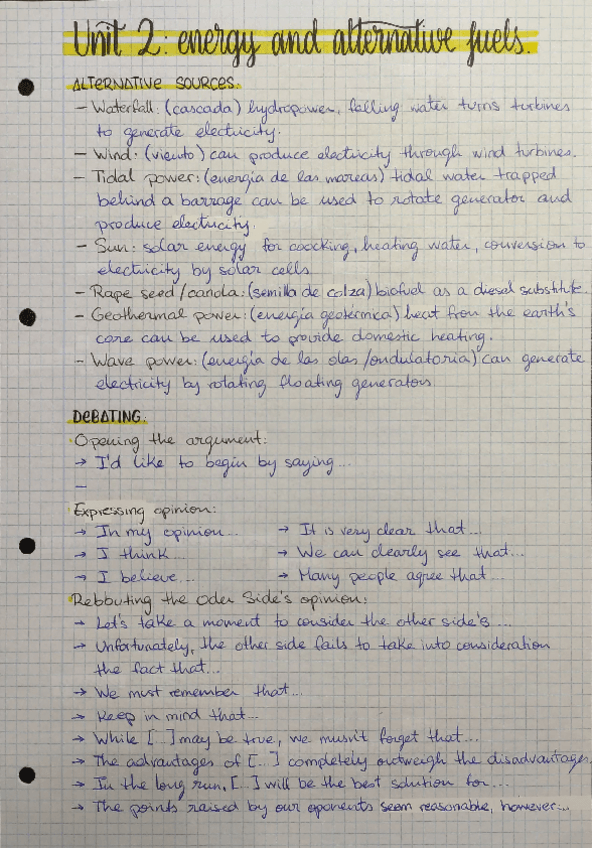 Unit 2: energy and alternative fuels.
ALTERNATIVE SOURCES:
- Waterfall: (cascada) hydropower, falling water turns turbines
to generate electricity.
- Wind: (viento) can produce electricity through wind turbines.
- Tidal power: (energía de las mareas) tidal water trapped
behind a barrage can be used to rotate generator and
produce electricity.
- Sun: solar energy for coocking, heating water, conversion to
electricity by solar cells
- Rape seed/canola: (semilla de colza) biofuel as a diesel substitute.
- Geothermal power: (energía geotérmica) heat from the earth's
core can be used to provide domestic heating.
- Wave power: (energía de las olas/ondulatoria) can generate
electricity by rotating floating generators
DEBATING:
Opening the argument:
→ I'd like to begin by saying...
—
Expressing opinion:
→ In my opinion... → It is very clear that...
→ I think... → We can clearly see that...
→ I believe... → Many people agree that...
Rebbuting the Oder Side's opinion:
→ Let's take a moment to consider the other side's ...
→ Unfortunately, the other side fails to take into consideration
the fact that...
→ We must remember that...
→ Keep in mind that...
→ While [...] may be true, we musn't forget that...
→ The advantages of [...] completely outweigh the disadvantages.
→ In the long run, [...] will be the best solution for...
→ The points raised by our oponents seem reasonable, however...